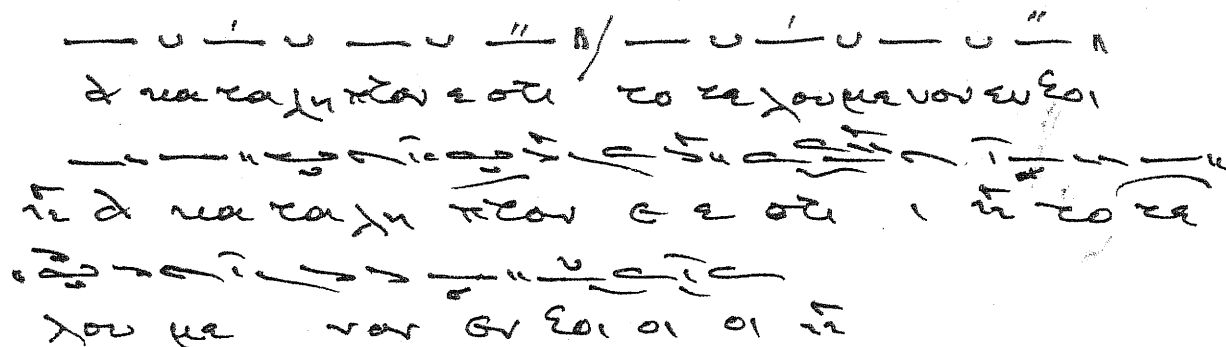 α κα τα λη πτον ε στι το τε λου με νον εν σοι
α κα τα λη πτον ε ε στι ι το τε
λου με νον εν σοι οι οι